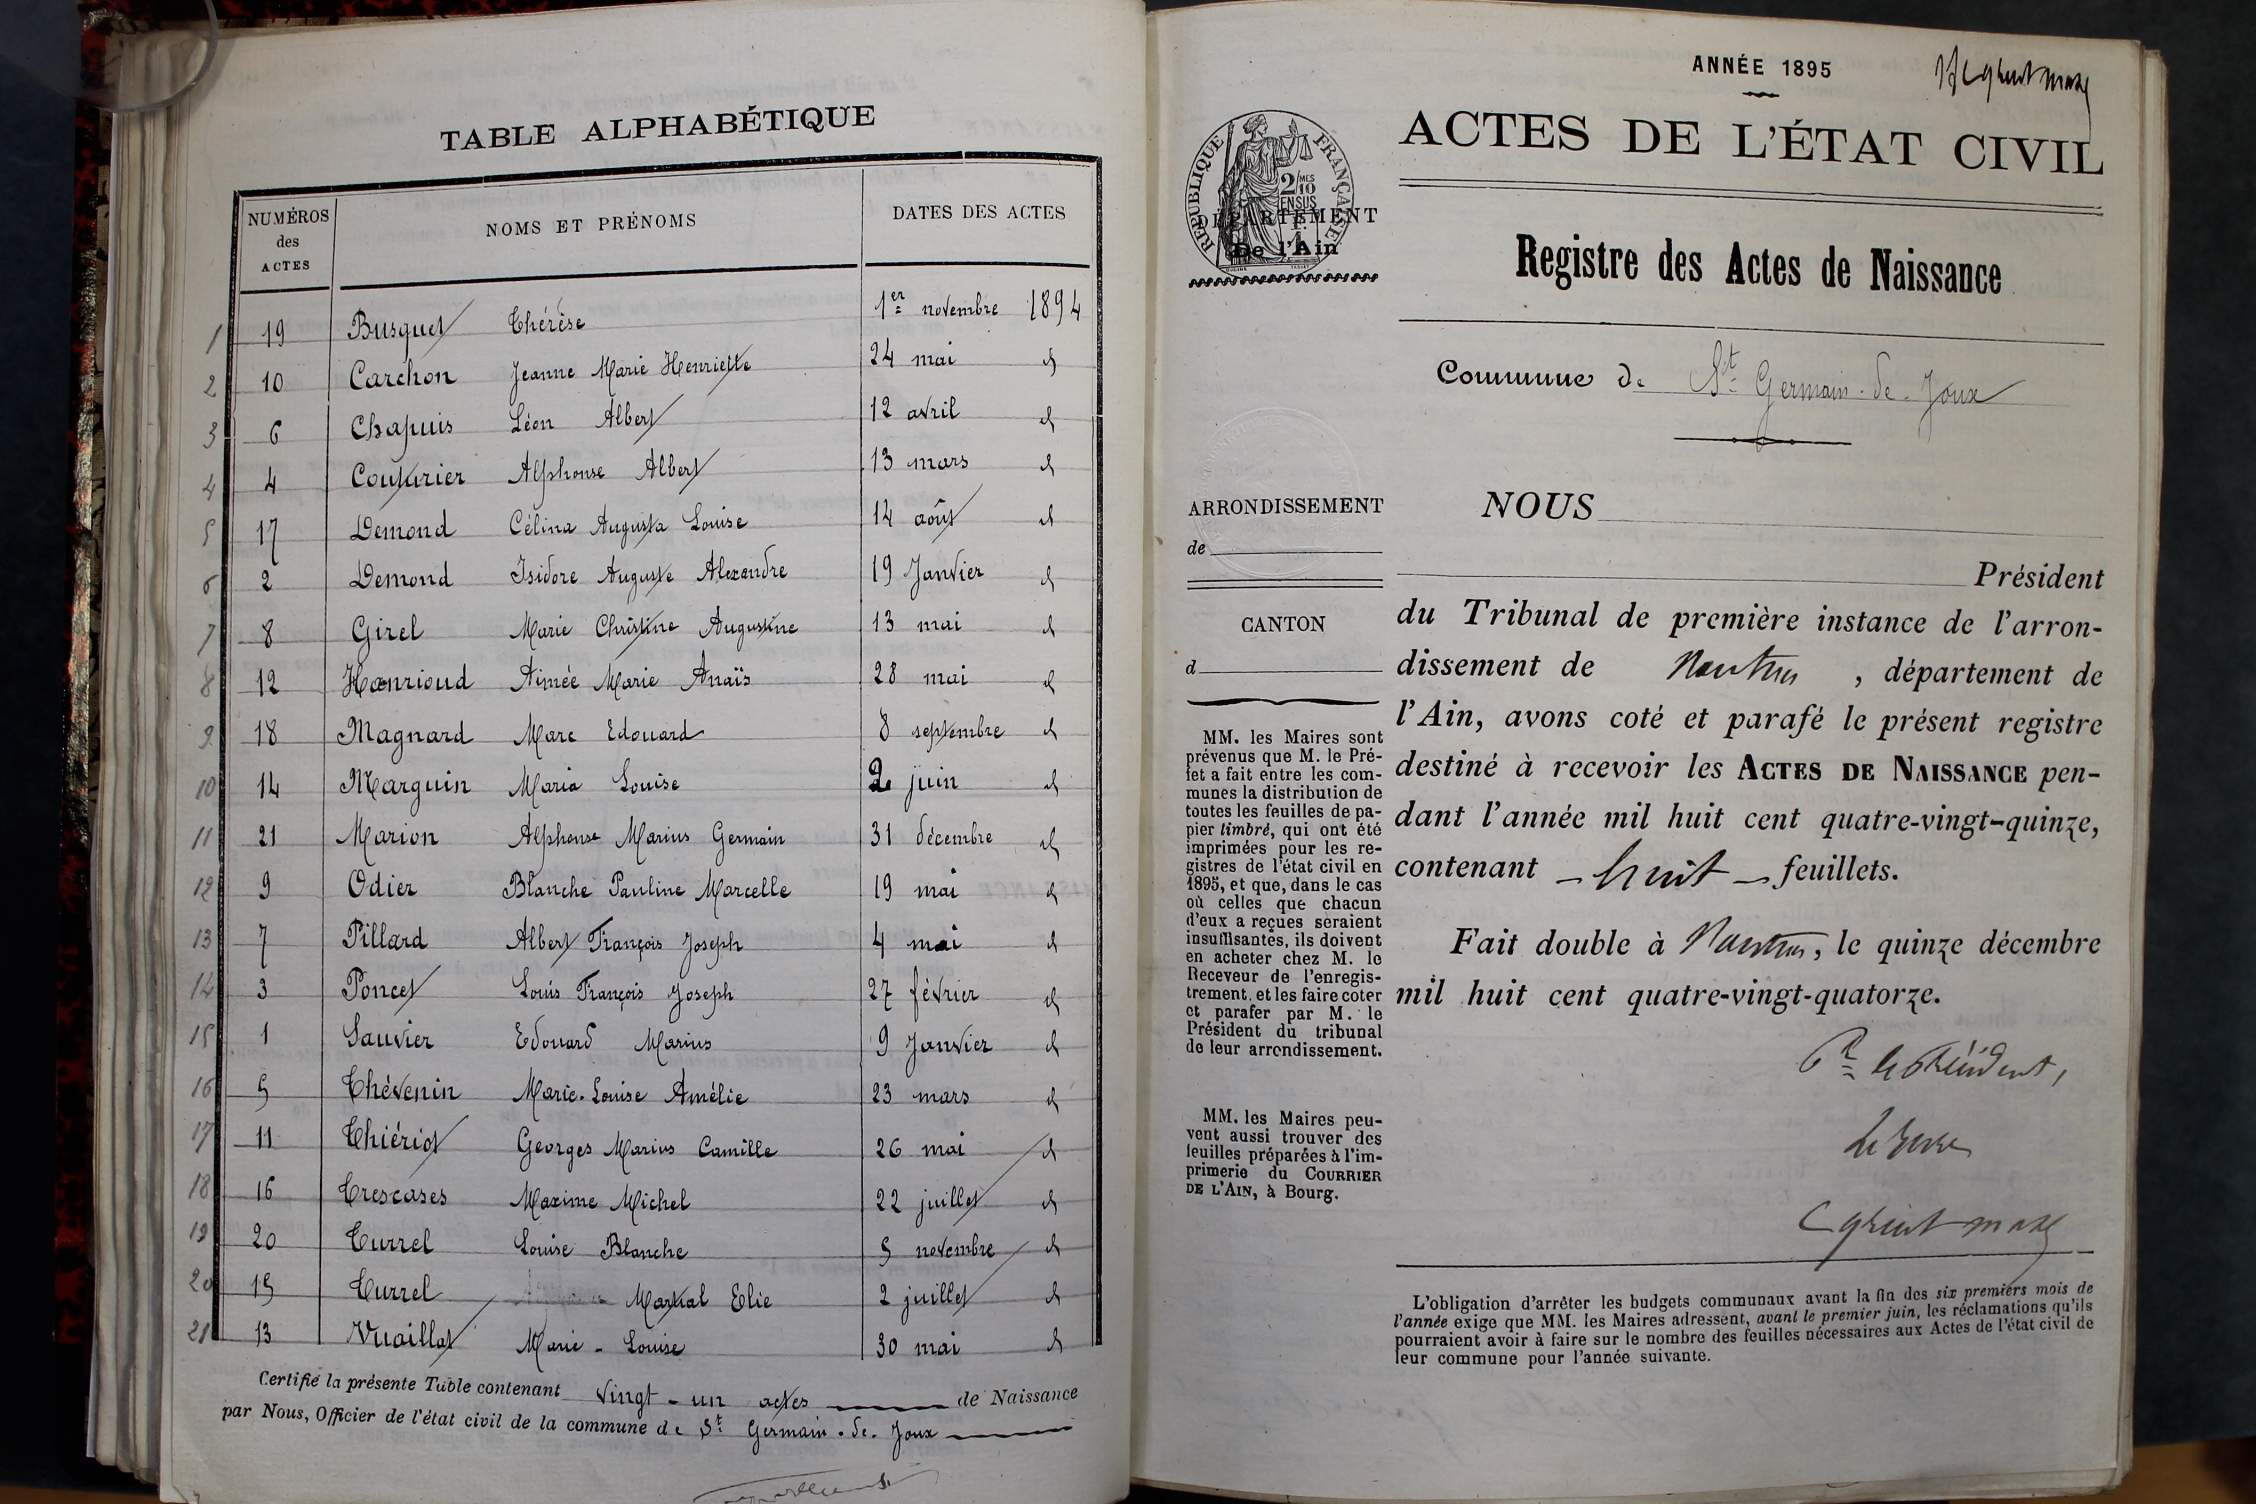 TABLE ALPHABÉTIQUE
NUMÉROS des ACTES NOMS ET PRÉNOMS DATES DES ACTES
1 19 Busquet Thérèse 1er novembre 1894
2 10 Carchon Jeanne Marie Henriette 24 mai d
3 6 Chapuis Léon Albert 12 avril d
4 4 Couturier Alphonse Albert 13 mars d
5 17 Demond Célina Augusta Louise 14 août d
6 2 Demond Isidore Auguste Alexandre 19 Janvier d
7 8 Girel Marie Christine Augustine 13 mai d
8 12 Hanrioud Aimée Marie Anaïs 28 mai d
9 18 Magnard Marc Edouard 8 septembre d
10 14 Marguin Maria Louise 2 juin d
11 21 Marion Alphonse Marius Germain 31 décembre d
12 9 Odier Blanche Pauline Marcelle 19 mai d
13 7 Pillard Albert François Joseph 4 mai d
14 3 Poncet Louis François Joseph 27 février d
15 1 Sauvier Edouard Marius 9 Janvier d
16 5 Thévenin Marie-Louise Amélie 23 mars d
17 11 Thiériot Georges Marius Camille 26 mai d
18 16 Trescases Maxime Michel 22 juillet d
19 20 Turrel Louise Blanche 5 novembre d
20 15 Turrel Martial Elie 2 juillet d
21 13 Vuaillat Marie-Louise 30 mai d
Certifié la présente Table contenant vingt-un actes de Naissance
par Nous, Officier de l'état civil de la commune de St Germain-de-Joux
ANNÉE 1895
ACTES DE L'ÉTAT CIVIL
RÉPUBLIQUE FRANÇAISE
2 MES 10
EN SUS
DÉPARTEMENT
De l'Ain
Registre des Actes de Naissance
Commune de St Germain-de-Joux
ARRONDISSEMENT
de
CANTON
d
MM. les Maires sont
prévenus que M. le Pré-
fet a fait entre les com-
munes la distribution de
toutes les feuilles de pa-
pier timbré, qui ont été
imprimées pour les re-
gistres de l'état civil en
1895, et que, dans le cas
où celles que chacun
d'eux a reçues seraient
insuffisantes, ils doivent
en acheter chez M. le
Receveur de l'enregis-
trement, et les faire coter
et parafer par M. le
Président du tribunal
de leur arrondissement.
MM. les Maires peu-
vent aussi trouver des
feuilles préparées à l'im-
primerie du COURRIER
DE L'AIN, à Bourg.
NOUS
Président
du Tribunal de première instance de l'arron-
dissement de Nantua, département de
l'Ain, avons coté et parafé le présent registre
destiné à recevoir les ACTES DE NAISSANCE pen-
dant l'année mil huit cent quatre-vingt-quinze,
contenant - huit - feuillets.
Fait double à Nantua, le quinze décembre
mil huit cent quatre-vingt-quatorze.
Pr le Président,
Le Juge
L'obligation d'arrêter les budgets communaux avant la fin des six premiers mois de
l'année exige que MM. les Maires adressent, avant le premier juin, les réclamations qu'ils
pourraient avoir à faire sur le nombre des feuilles nécessaires aux Actes de l'état civil de
leur commune pour l'année suivante.